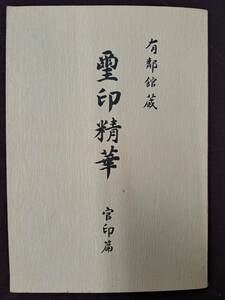 有鄰館蔵
璽印精華
官印篇